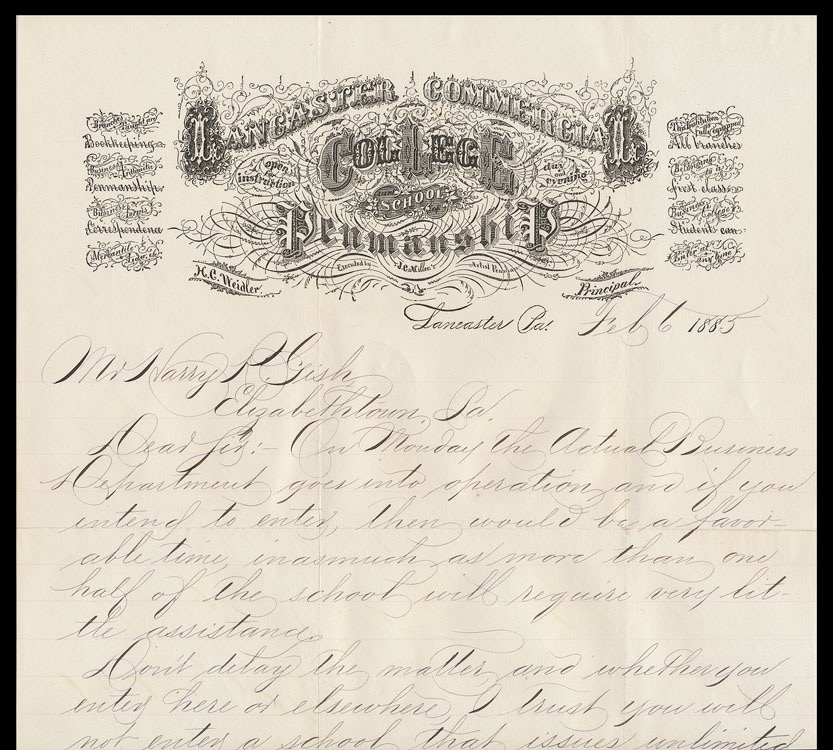 LANCASTER COMMERCIAL
COLLEGE
open for instruction
day and evening
SCHOOL
Penmanship
Executed by J.C. Miller's Artist Penman
Branches Taught are
Bookkeeping
Business Arithmetic
Penmanship
Business forms
Correspondence
Mercantile Law &c
This Institution is fully equipped
All branches
Belonging to a
first class
Business College
Students can
Enter at any time
H.C. Weidler.
Principal.
Lancaster Pa. Feb 6 1885
Mr Harry R. Gish
Elizabethtown, Pa.
Dear Sir:- On Monday the Actual Business
Department goes into operation and if you
intend to enter, then would be a favor-
able time, inasmuch as more than one
half of the school will require very lit-
tle assistance.
Don't delay the matter and whether you
enter here or elsewhere, I trust you will
not enter a school that issues unlimited